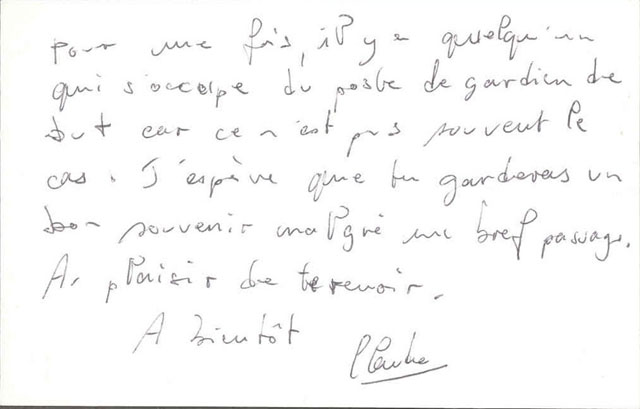 pour une fois, il y a quelqu'un
qui s'occupe du poste de gardien de
but car ce n'est pas souvent le
cas. J'espère que tu garderas un
bon souvenir malgré un bref passage.
Au plaisir de te revoir.
A bientôt